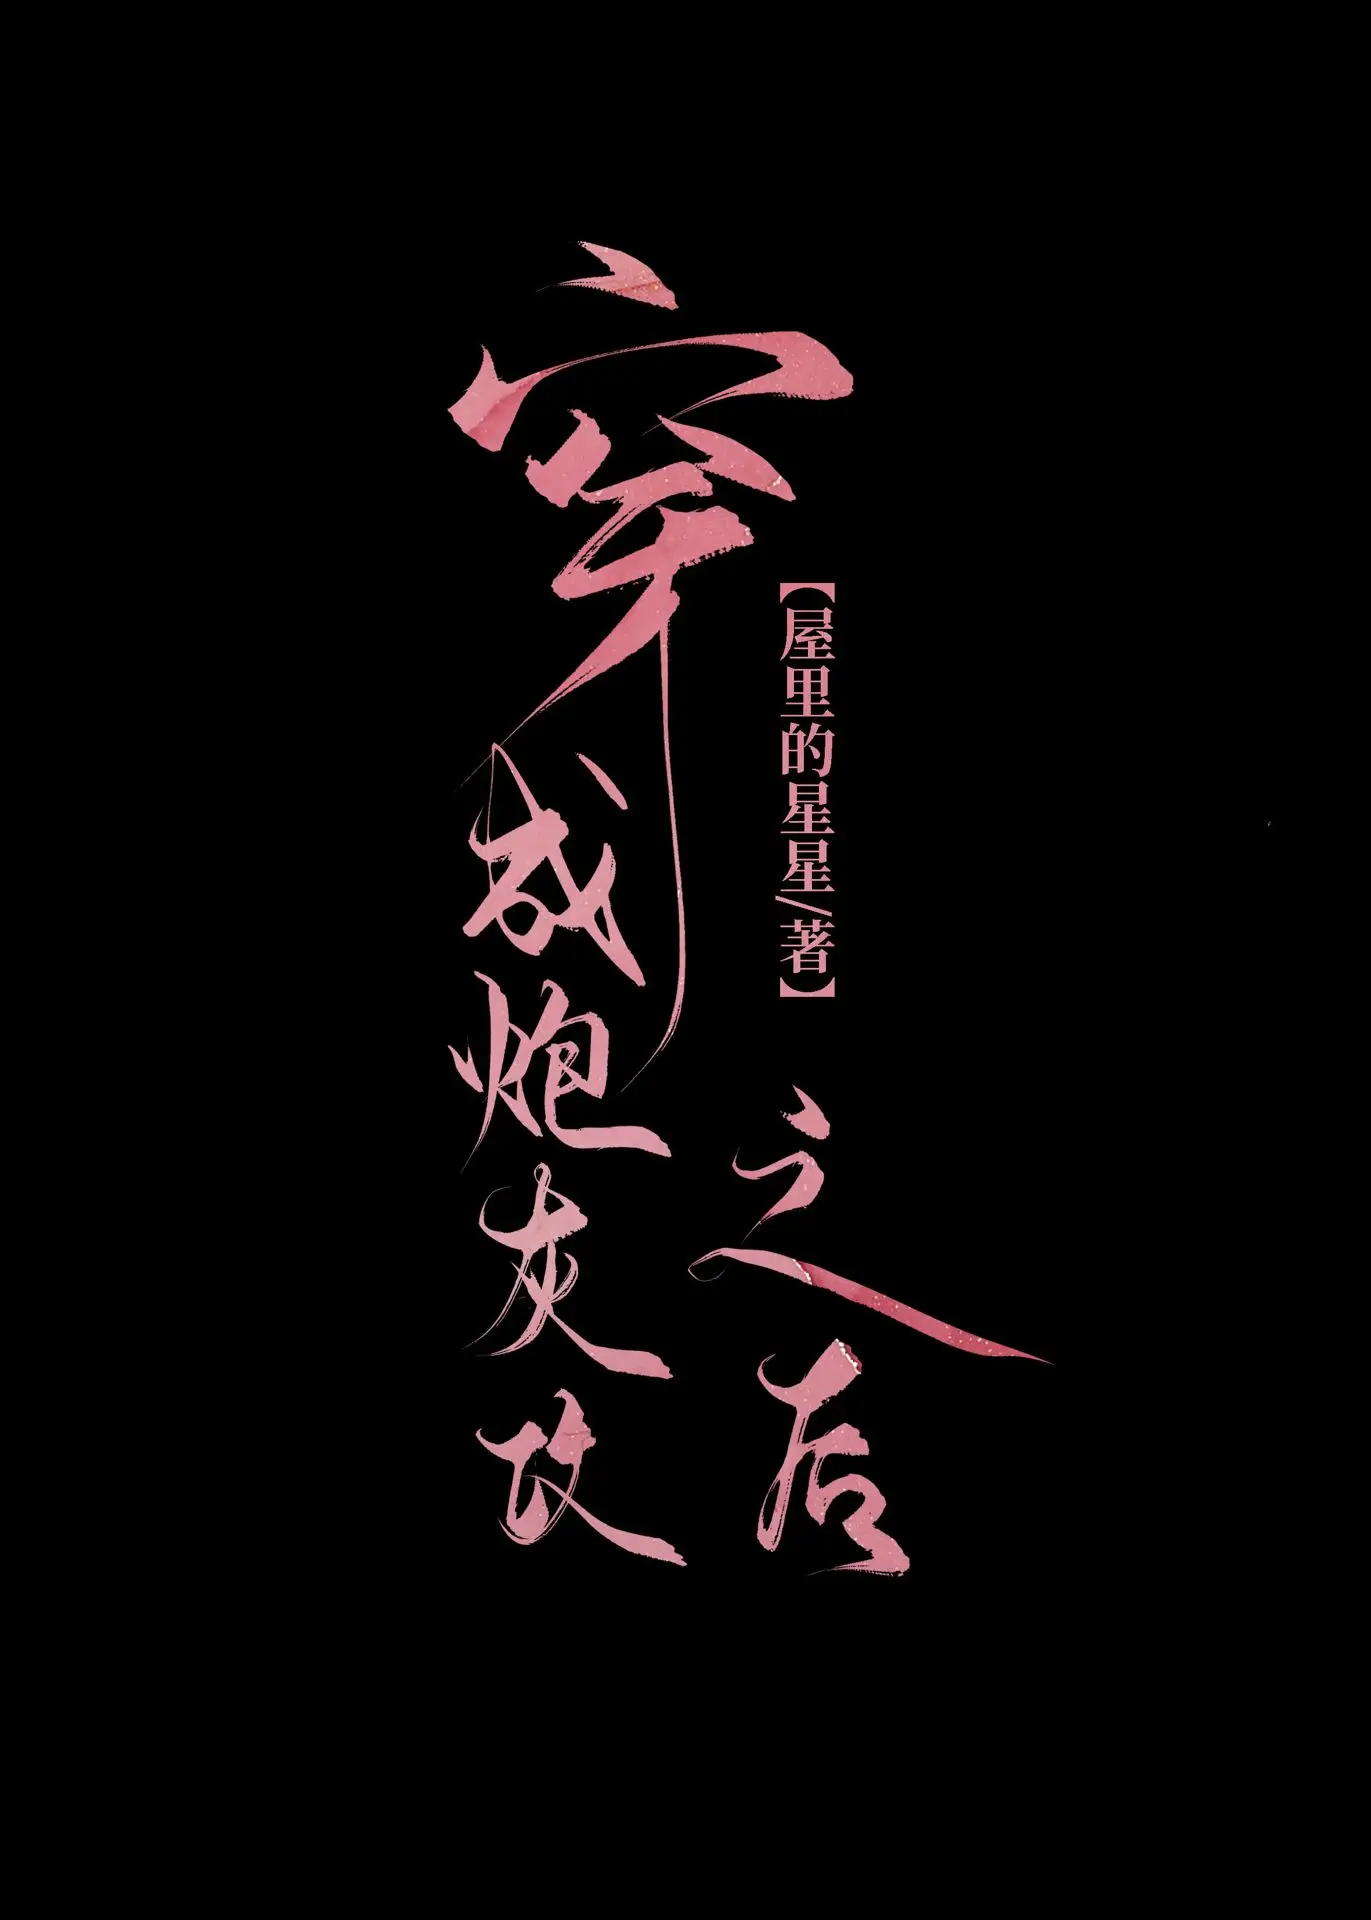 穿成炮灰攻
之后
【屋里的星星//著】